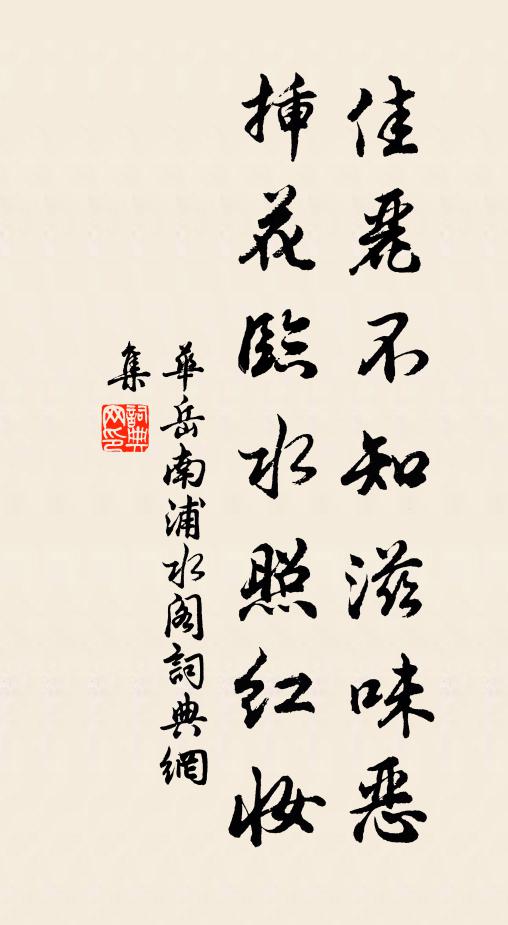 佳麗不知滋味惡
插花臨水照红妝
華岳南浦水阁詞典網
集
詞典网印